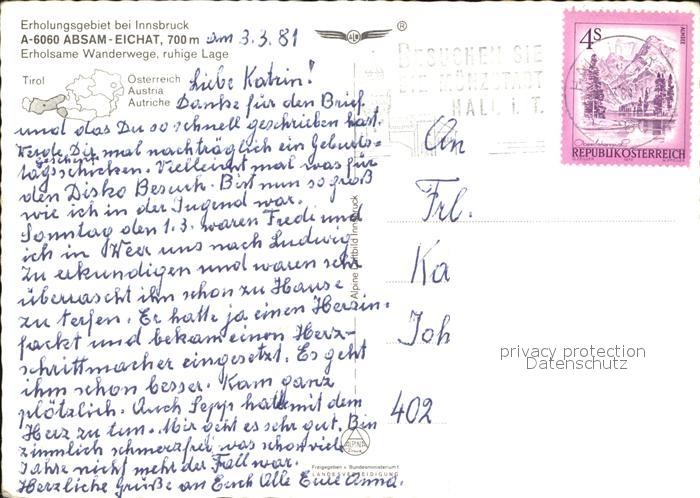 Erholungsgebiet bei Innsbruck
A-6060 ABSAM-EICHAT, 700 m am 3.3.81
Erholsame Wanderwege, ruhige Lage
Tirol
Österreich
Austria
Autriche
Liebe Katrin!
Danke für den Brief
und das Du so schnell geschrieben hast.
Werde Dir mal nachträglich ein Geburts-
tagsgeschenk schicken. Vielleicht mal was für
den Disko Besuch. Bist nun so groß
wie ich in der Jugend war.
Sonntag den 1.3. waren Fredi und
ich in Weer uns nach Ludwig
zu erkundigen und waren sehr
überrascht ihn schon zu Hause
zu treffen. Er hatte ja einen Herzin-
fackt und bekam einen Herz-
schrittmacher eingesetzt. Es geht
ihm schon besser. Kam ganz
plötzlich. Auch Sepp hat mit dem
Herz zu tun. Mir geht es sehr gut. Bin
zimmlich schmerzfrei was schon viele
Jahre nicht mehr der Fall war.
Herzliche Grüße an Euch Alle Eure Anna.
BESUCHEN SIE
DIE MÜNZSTADT
HALL i. T.
4S
REPUBLIK ÖSTERREICH
An
Frl.
Ka
Joh
402
Alpine Luftbild Innsbruck
ALPINE
Freigegeben v. Bundesministerium f.
LANDESVERTEIDIGUNG
privacy protection
Datenschutz